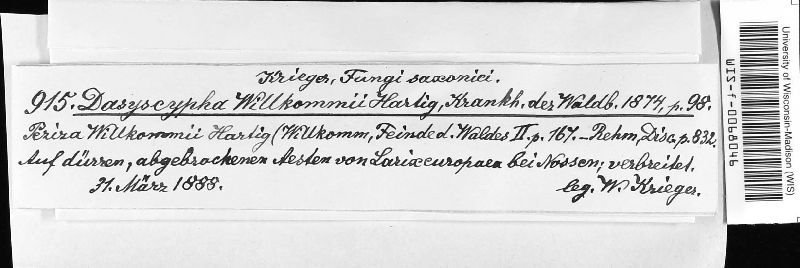 Krieger, Fungi saxonici.
915. Dasyscypha Willkommii Hartig, Krankh. der Waldb. 1874, p. 98.
Peziza Willkommii Hartig (Willkomm, Feinde d. Waldes II. p. 167. – Rehm, Disc. p. 832.
Auf dürren, abgebrochenen Aesten von Larix europaea bei Nossen, verbreitet.
31. März 1888. leg. W. Krieger.
University of Wisconsin-Madison (WIS)
WIS-f-0069046